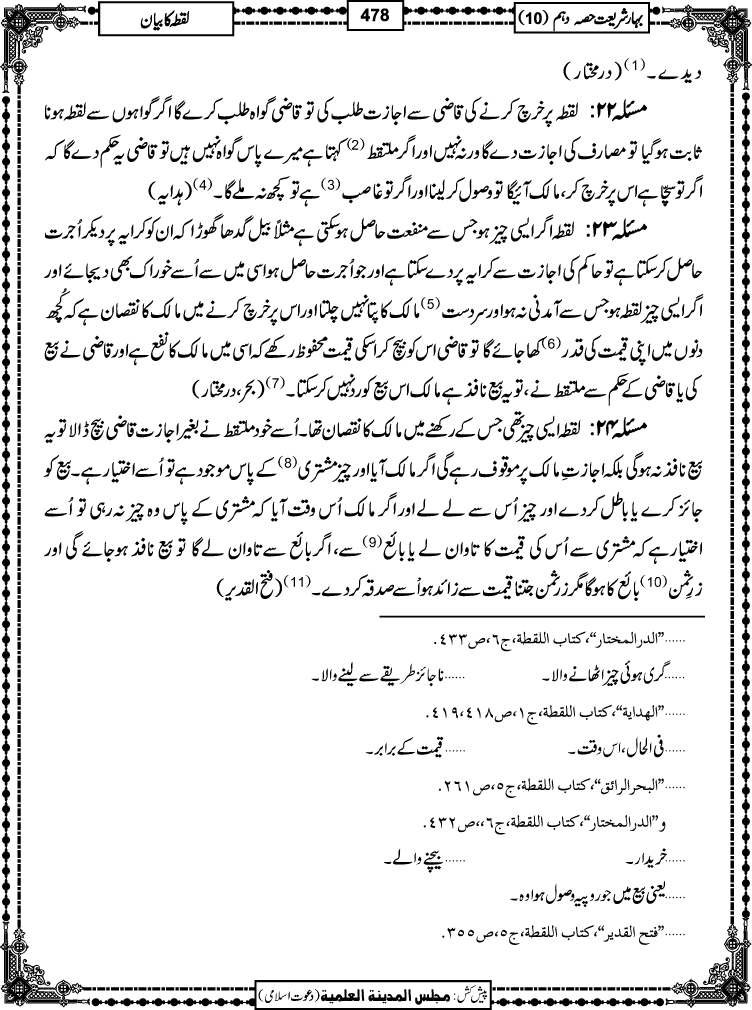 بہارِشریعت حصہ دہم (10)
478
لقطہ کا بیان
دیدے۔(1) (درمختار)
مسئلہ ۲۲: لقطہ پر خرچ کرنے کی قاضی سے اجازت طلب کی تو قاضی گواہ طلب کرے گا اگر گواہوں سے لقطہ ہونا
ثابت ہوگیا تو مصارف کی اجازت دے گا ورنہ نہیں اور اگر ملتقط(2) کہتا ہے میرے پاس گواہ نہیں ہیں تو قاضی یہ حکم دے گا کہ
اگر تو سچا ہے اس پر خرچ کر، مالک آئیگا تو وصول کر لینا اور اگر تو غاصب(3) ہے تو کچھ نہ ملے گا۔(4) (ہدایہ)
مسئلہ ۲۳: لقطہ اگر ایسی چیز ہو جس سے منفعت حاصل ہوسکتی ہے مثلاً بیل گدھا گھوڑا کہ ان کو کرایہ پر دیکر اُجرت
حاصل کرسکتا ہے تو حاکم کی اجازت سے کرایہ پر دے سکتا ہے اور جو اُجرت حاصل ہو اسی میں سے اُسے خوراک بھی دیجائے اور
اگر ایسی چیز لقطہ ہو جس سے آمدنی نہ ہو اور سردست(5) مالک کا پتا نہیں چلتا اور اس پر خرچ کرنے میں مالک کا نقصان ہے کہ کُچھ
دنوں میں اپنی قیمت کی قدر(6) کھا جائے گا تو قاضی اس کو بیچ کر اسکی قیمت محفوظ رکھے کہ اسی میں مالک کا نفع ہے اور قاضی نے بیع
کی یا قاضی کے حکم سے ملتقط نے، تو یہ بیع نافذ ہے مالک اس بیع کو رد نہیں کرسکتا۔(7) (بحر، درمختار)
مسئلہ ۲۴: لقطہ ایسی چیز تھی جس کے رکھنے میں مالک کا نقصان تھا۔ اُسے خود ملتقط نے بغیر اجازت قاضی بیچ ڈالا تو یہ
بیع نافذ نہ ہوگی بلکہ اجازتِ مالک پر موقوف رہے گی اگر مالک آیا اور چیز مشتری(8) کے پاس موجود ہے تو اُسے اختیار ہے۔ بیع کو
جائز کرے یا باطل کردے اور چیز اُس سے لے لے اور اگر مالک اُس وقت آیا کہ مشتری کے پاس وہ چیز نہ رہی تو اُسے
اختیار ہے کہ مشتری سے اُس کی قیمت کا تاوان لے یا بائع(9) سے، اگر بائع سے تاوان لے گا تو بیع نافذ ہو جائے گی اور
زرِ ثمن(10) بائع کا ہوگا مگر زرِ ثمن جتنا قیمت سے زائد ہو اُسے صدقہ کردے۔(11) (فتح القدیر)
......”الدرالمختار“، کتاب اللقطة، ج٦، ص٤٣٣.
......گری ہوئی چیز اٹھانے والا۔ ......ناجائز طریقے سے لینے والا۔
......”الهداية“، کتاب اللقطة، ج١، ص٤١٨، ٤١٩.
......فی الحال، اس وقت۔ ......قیمت کے برابر۔
......”البحرالرائق“، کتاب اللقطة، ج٥، ص٢٦١.
و”الدرالمختار“، کتاب اللقطة، ج٦،، ص٤٣٢.
......خریدار۔ ......بیچنے والے۔
......یعنی بیع میں جو روپیہ وصول ہوا وہ۔
......”فتح القدیر“، کتاب اللقطة، ج٥، ص٣٥٥.
پیش کش: مجلس المدینة العلمیة (دعوت اسلامی)